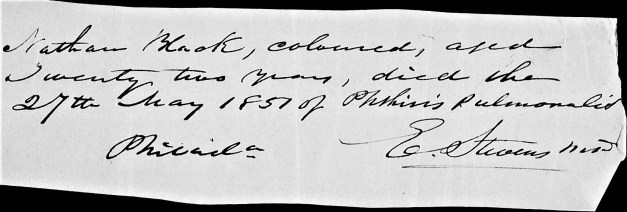 Nathan Black, coloured, aged
Twenty two years, died the
27th May 1851 of Phthisis Pulmonalis
Philad a
E. Stevens MD